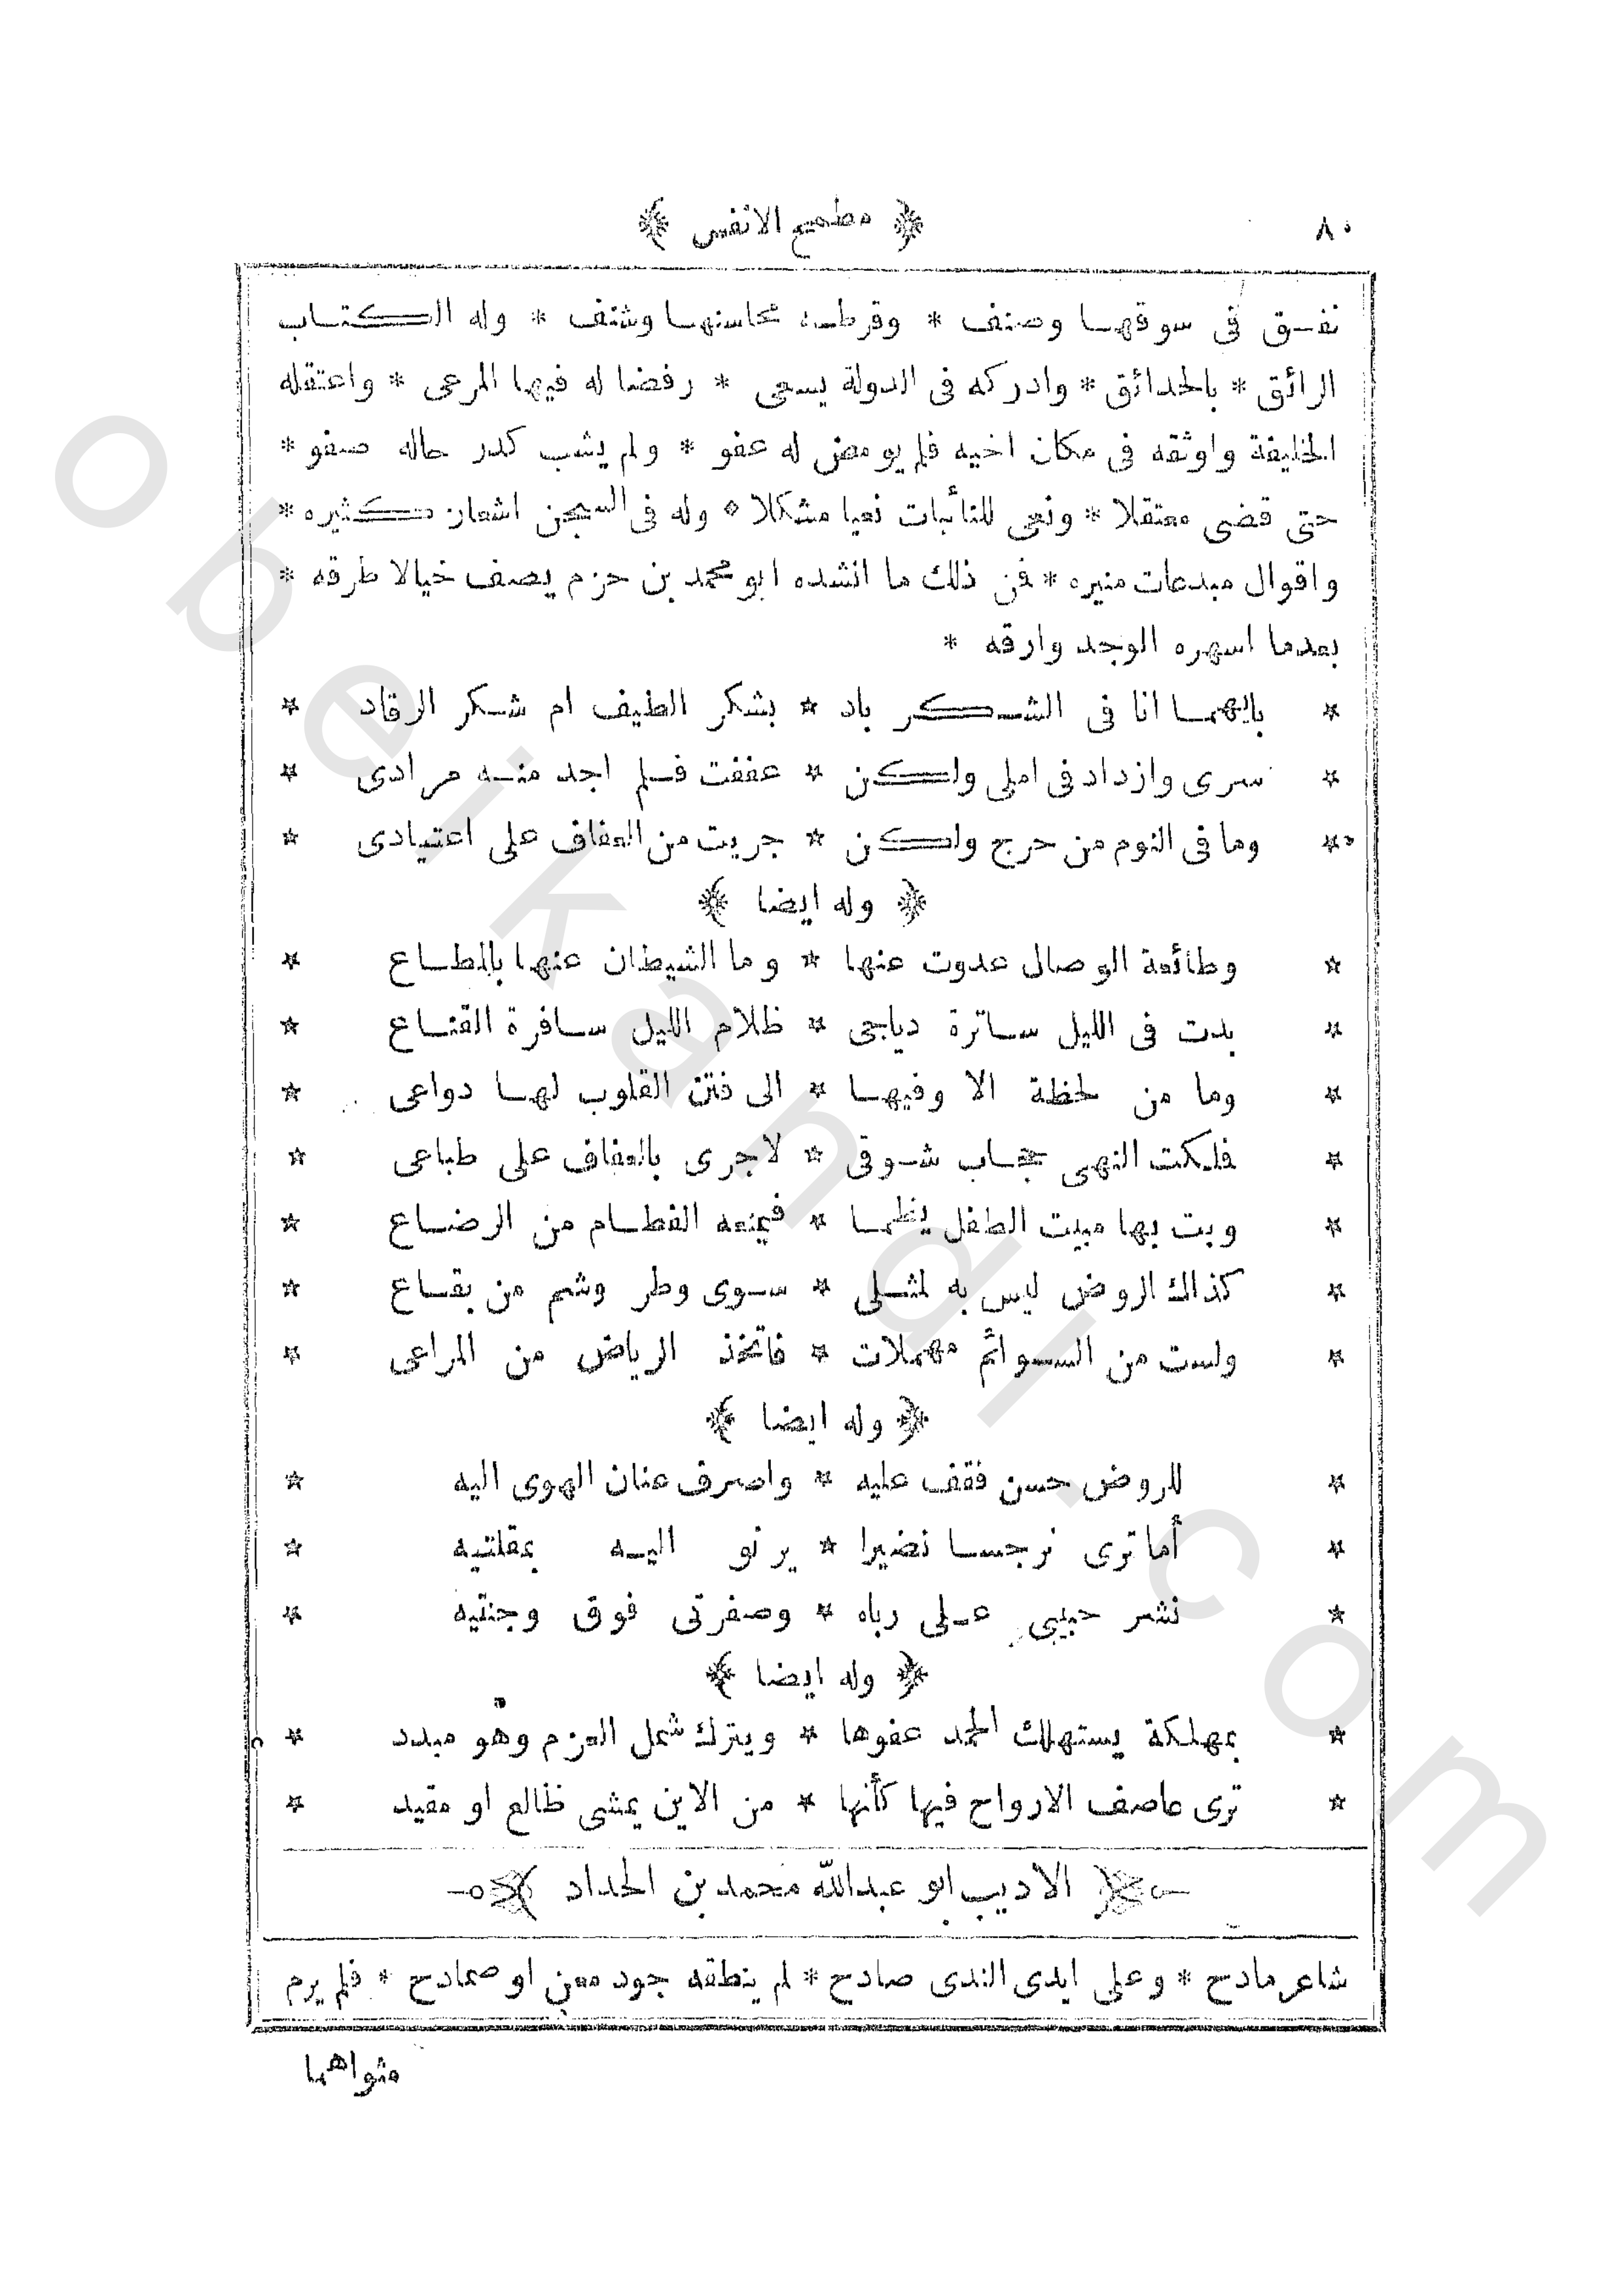 ٨٠ ﴿ مطمح الانفس ﴾
نفق فى سوقها وصنف * وقرطه محاسنها وشنف * وله الكتاب
الرائق * بالحدائق * وادركه فى الدولة يسعى * رفضا له فيها المرعى * واعتقله
الخليفة واوثقه فى مكان اخيه فلم يومض له عفو * ولم يشب كدر حاله صفو *
حتى قضى معتقلا * ونعى للنائبات نعيا مشكلا * وله فى السجن اشعار كثيره *
واقوال مبدعات منيره * فمن ذلك ما انشده ابو محمد بن حزم يصف خيالا طرقه *
بعدما اسهره الوجد وارقه *
* بايهما انا فى الشكر باد * بشكر الطيف ام شكر الرقاد *
* سرى وازداد فى املى ولكن * عففت فلم اجد منه مرادى *
* وما فى النوم من حرج ولكن * جريت من العفاف على اعتيادى *
﴿ وله ايضا ﴾
* وطائعة الوصال عدوت عنها * وما الشيطان عنها بالمطاع *
* بدت فى الليل ساترة دياجى * ظلام الليل سافرة القناع *
* وما من لحظة الا وفيها * الى فتن القلوب لها دواعى *
* فملكت النهى حجاب شوقى * لاجرى بالعفاف على طباعى *
* وبت بها مبيت الطفل يظما * فيمنعه الفطام من الرضاع *
* كذاك الروض ليس به لمثلى * سوى وطر وشم من بقاع *
* ولست من السوائم مهملات * فاتخذ الرياض من المراعى *
﴿ وله ايضا ﴾
* للروض حسن فقف عليه * واصرف عنان الهوى اليه *
* أما ترى نرجسا نضيرا * يرنو اليه بمقلتيه *
* نشر حبيبى على رباه * وصفرتى فوق وجنتيه *
﴿ وله ايضا ﴾
* بمهلكة يستهلك الحمد عفوها * ويترك شمل العزم وهو مبدد *
* ترى عاصف الارواح فيها كأنها * من الاين يمشى ظالع او مقيد *
﴿ الاديب ابو عبدالله محمد بن الحداد ﴾
شاعر مادح * وعلى ايدى الندى صادح * لم ينطقه جود معن او صمادح * فلم يرم
مثواهما
obeikandl.com